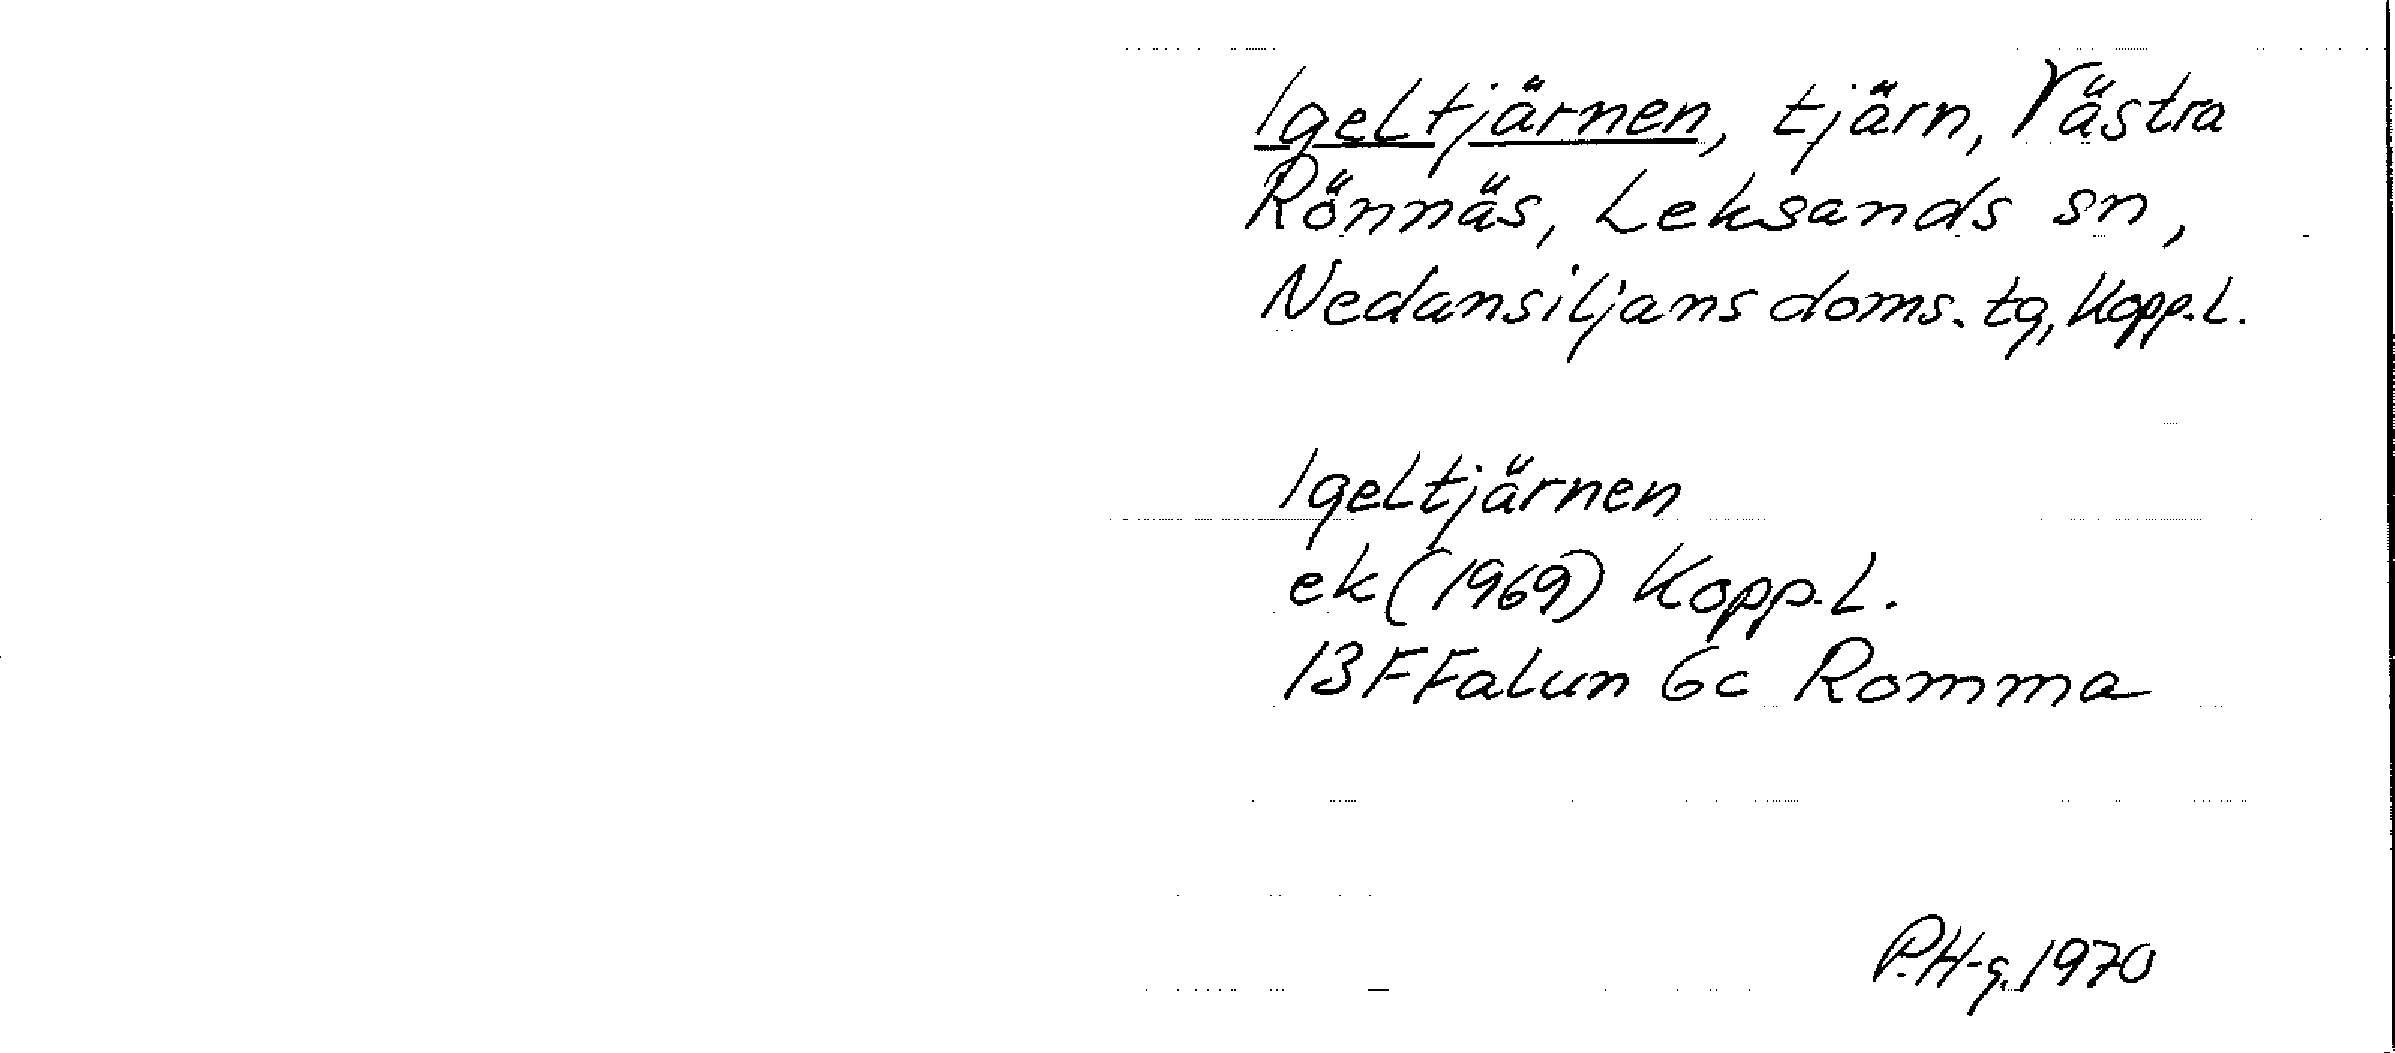 Igeltjärnen, tjärn, Västra
Rönnäs, Leksands sn,
Nedansiljans doms. tg, Kopp. L.
Igeltjärnen
ek (1969) Kopp. L.
13F Falun 6c Romma
P.H-g. 1970